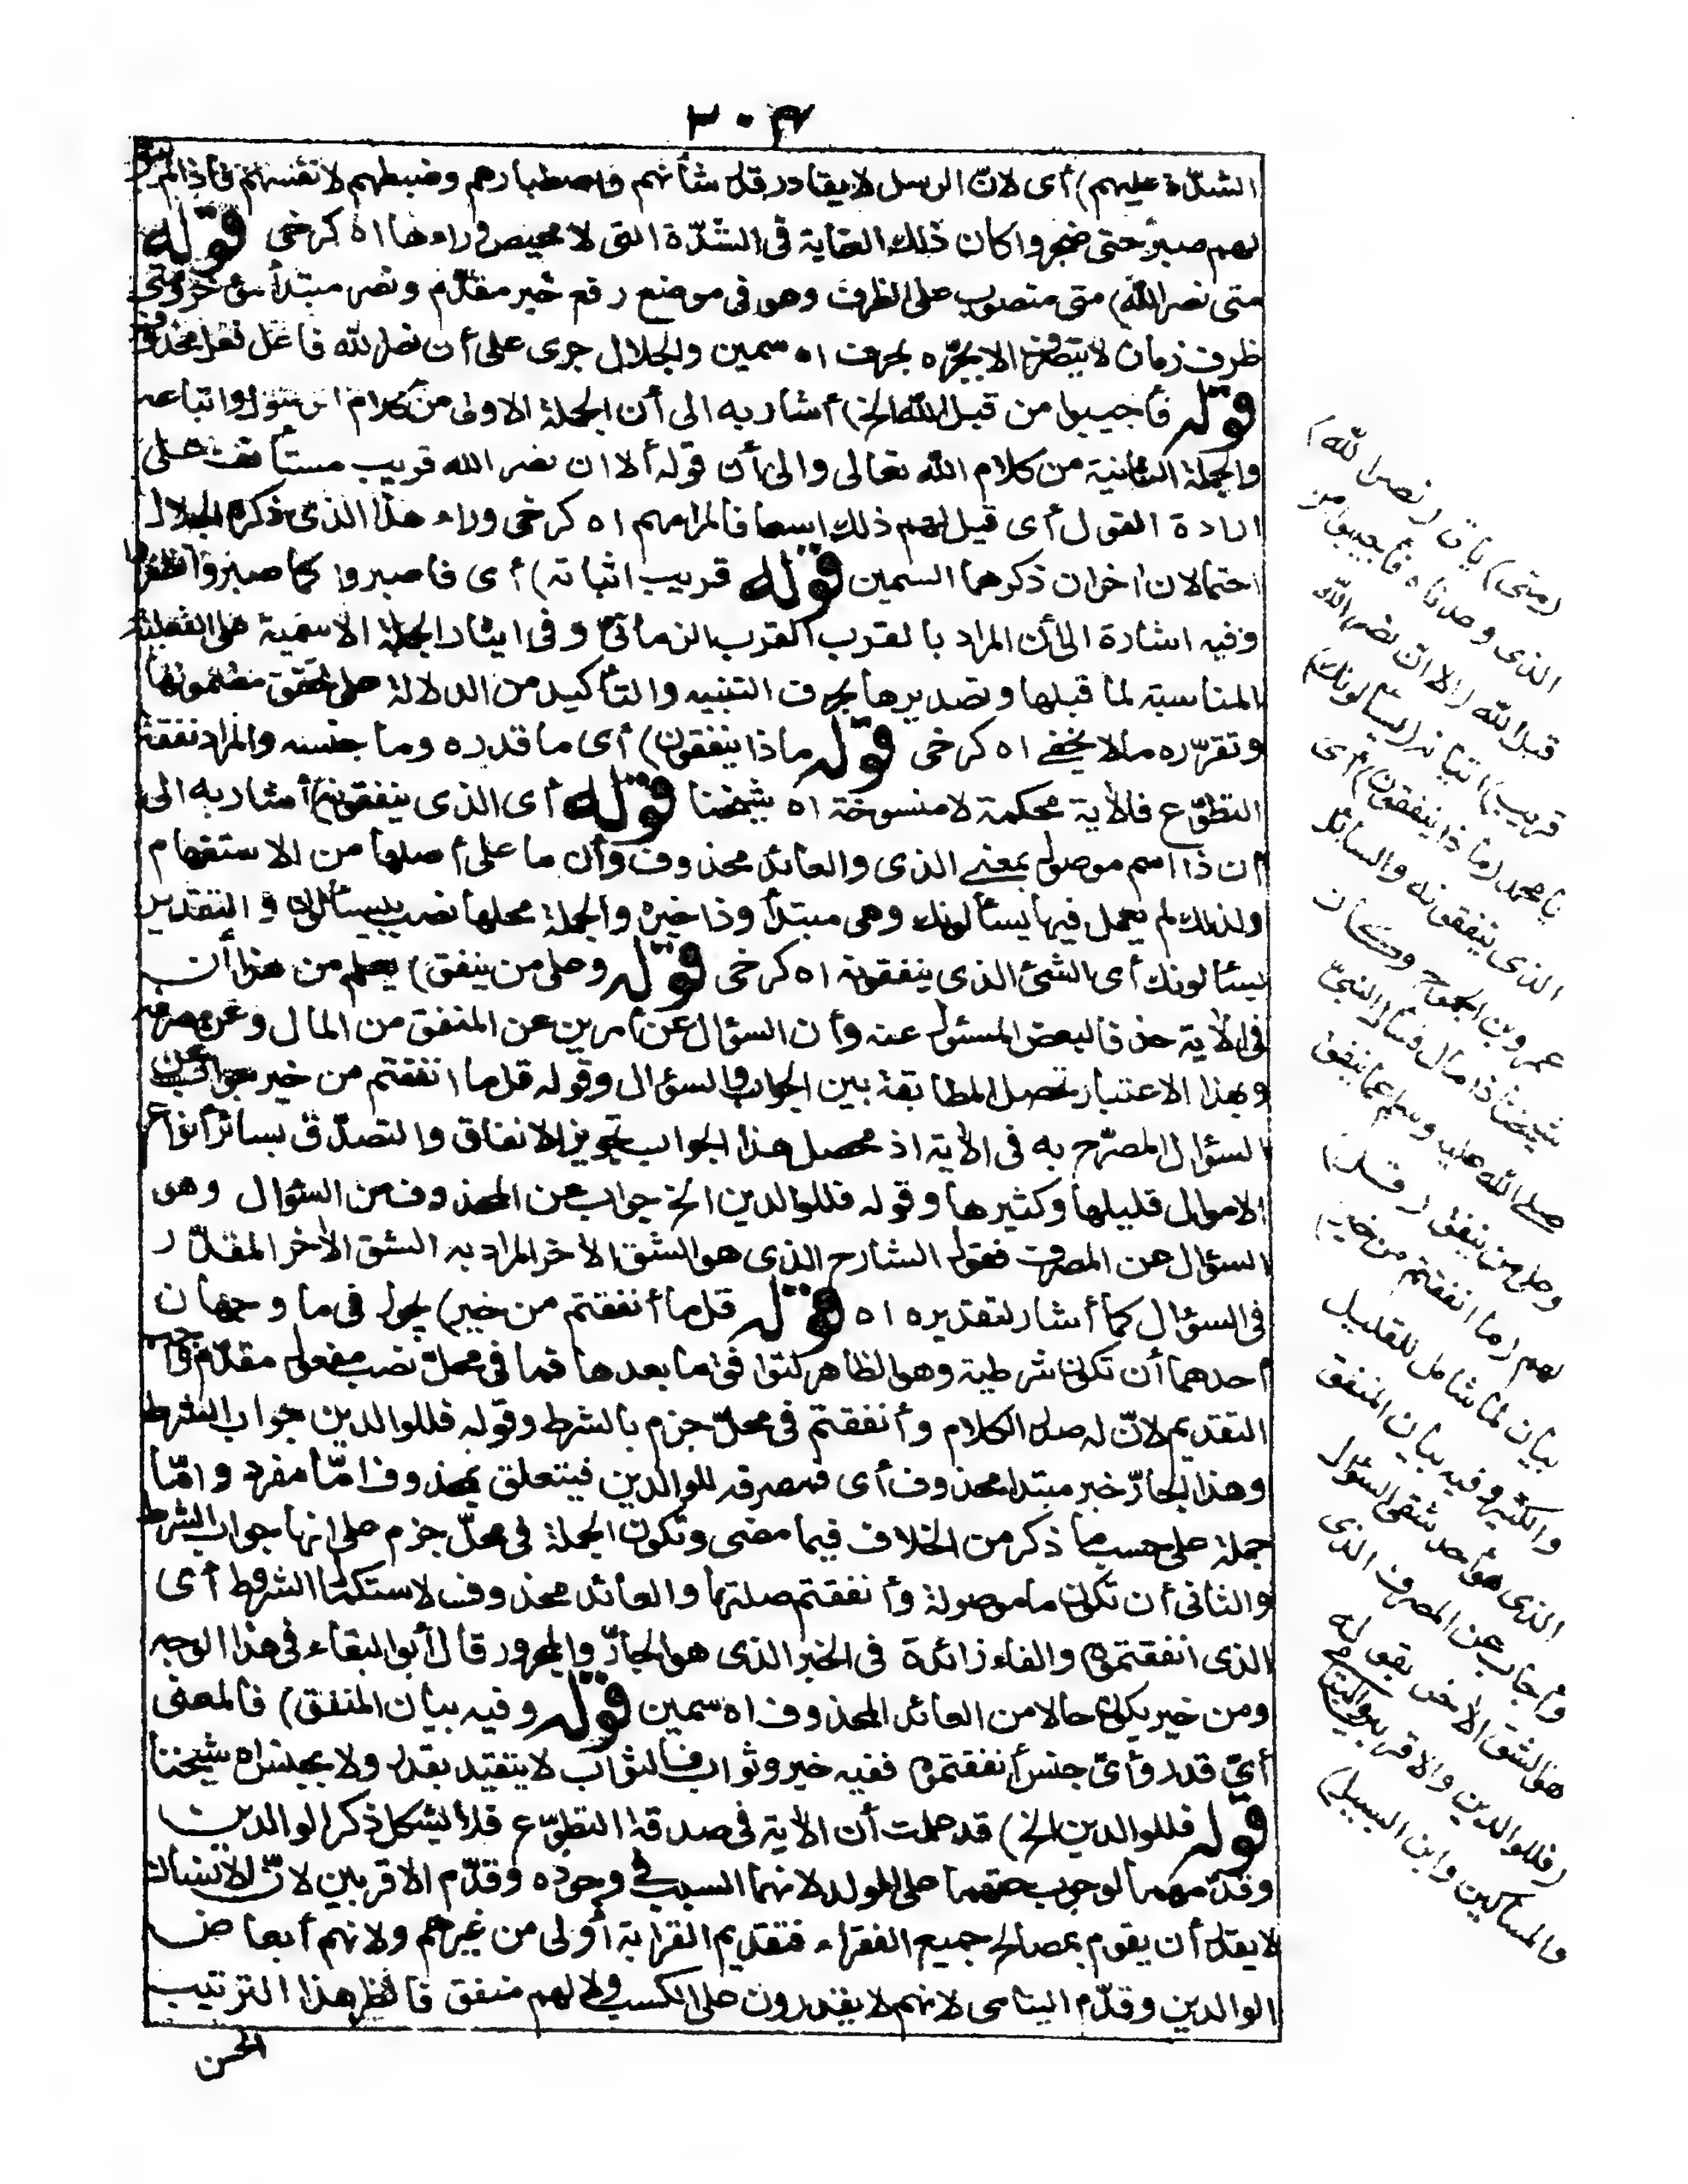 ٣٠٤
الشدّة عليهم) أى لانّ الرسل لا يقادر قدر شأنهم واصطبارهم وضبطهم لانفسهم فاذا لم يبق
لهم صبر حتى ضجروا كان ذلك الغاية فى الشدّة التى لا محيص وراءها اه كرخى قوله
متى نصر الله) متى منصوب على الظرف وهو فى موضع رفع خبر مقدّم ونصر مبتدأ مؤخر ومتى
ظرف زمان لا يتصرف الا بجرّه بحرف اه سمين والجلال جرى على أن نصر الله فاعل فعل محذوف
قوله فأجيبوا من قبل الله الخ) أشار به الى أن الجملة الاولى من كلام الرسول واتباعه
والجملة الثانية من كلام الله تعالى والى أن قوله ألا ان نصر الله قريب مستأنف على
ارادة القول أى قيل لهم ذلك اسعافا لمرامهم اه كرخى وراء هذا الذى ذكره الجلال
احتمالان اخران ذكرهما السمين قوله قريب اتيانه) أى فاصبروا كما صبروا تظفروا
وفيه اشارة الى أن المراد بالقرب القرب الزمانىّ وفى ايثار الجملة الاسمية على الفعلية
المناسبة لما قبلها وتصديرها بحرف التنبيه والتأكيد من الدلالة على تحقق مضمونها
وتقرّره ما لا يخفى اه كرخى قوله ماذا ينفقون) أى ما قدره وما جنسه والمراد نفقة
التطوّع فالأية محكمة لا منسوخة اه شيخنا قوله أى الذى ينفقونه) أشار به الى
أن ذا اسم موصول بمعنى الذى والعائد محذوف وأن ما على أصلها من الاستفهام
ولذلك لم يعمل فيها يسألونك وهى مبتدأ وذا خبره والجملة محلها نصب بيسألون والتقدير
يسئالونك أى الشئ الذى ينفقونه اه كرخى قوله وعلى من ينفق) يعلم من هذا أن
فى الأية حذفا لبعض المسئول عنه وأن السؤال عن أمرين عن المنفق من المال وعن مصرفه
وبهذا الاعتبار تحصل المطابقة بين الجواب والسؤال وقوله قل ما انفقتم من خير جواب عن
السؤال المصرّح به فى الأية اذ محصل هذا الجواب تجويز الانفاق والتصدّق بسائر أنواع
الاموال قليلها وكثيرها وقوله فللوالدين الخ جواب عن المحذوف من السؤال وهو
السؤال عن المصرف فقول الشارح الذى هو الشق الأخر المراد به الشق الأخر المقدّر
فى السؤال كما أشار لتقديره اه قوله قل ما أنفقتم من خير) يجوز فى ما وجهان
أحدهما أن تكون شرطية وهو الظاهر لتوافق ما بعدها فما فى محلّ نصب مفعول مقدّم واجب
التقديم لانّ له صدر الكلام وأنفقتم فى محلّ جزم بالشرط وقوله فللوالدين جواب الشرط
وهذا الجارّ خبر مبتدا محذوف أى فمصرفه للوالدين فيتعلق بمحذوف امّا مفرد وامّا
جملة على حسب ما ذكر من الخلاف فيما مضى وتكون الجملة فى محلّ جزم على انها جواب الشرط
والثانى أن تكون ما موصولة وأنفقتم صلتها والعائد محذوف لاستكمال الشروط أى
الذى انفقتموه والفاء زائدة فى الخبر الذى هو الجارّ والمجرور قال أبو البقاء فى هذا الوجه
ومن خير يكون حالا من العائد المحذوف اه سمين قوله وفيه بيان المنفق) فالمعنى
أىّ قدر وأىّ جنس أنفقتموه ففيه خير وثواب فالثواب لا يتقيد بقدر ولا بجنس اه شيخنا
قوله فللوالدين الخ) قد علمت أن الأية فى صدقة التطوّع فلا يشكل ذكر الوالدين
وقدّمهما لوجوب حقهما على الولد لانهما السبب فى وجوده وقدّم الاقربين لانّ الانسان
لا يقدر أن يقوم بمصالح جميع الفقراء فتقديم القرابة أولى من غيرهم ولانهم أبعاض
الوالدين وقدّم اليتامى لانهم لا يقدرون على الكسب ولا لهم منفق فانظر هذا الترتيب
الحسن
(متى) يأتى (نصر الله)
الذى وعدناه فأجيبوا من
قبل الله (الا ان نصر الله
قريب) اتيانه (يسألونك)
يا محمد (ماذا ينفقون) أى
الذى ينفقونه والسائل
عمرو بن الجموح وكان
شيخا ذا مال فسأل النبىّ
صلى الله عليه وسلم عما ينفق
وعلى من ينفق (قل)
لهم (ما انفقتم من خير)
بيان لما شامل للقليل
والكثير وفيه بيان المنفق
الذى هو أحد شقى السؤال
وأجاب عن المصرف الذى
هو الشق الأخر بقوله
(فللوالدين والاقربين واليتامى
والمساكين وابن السبيل)